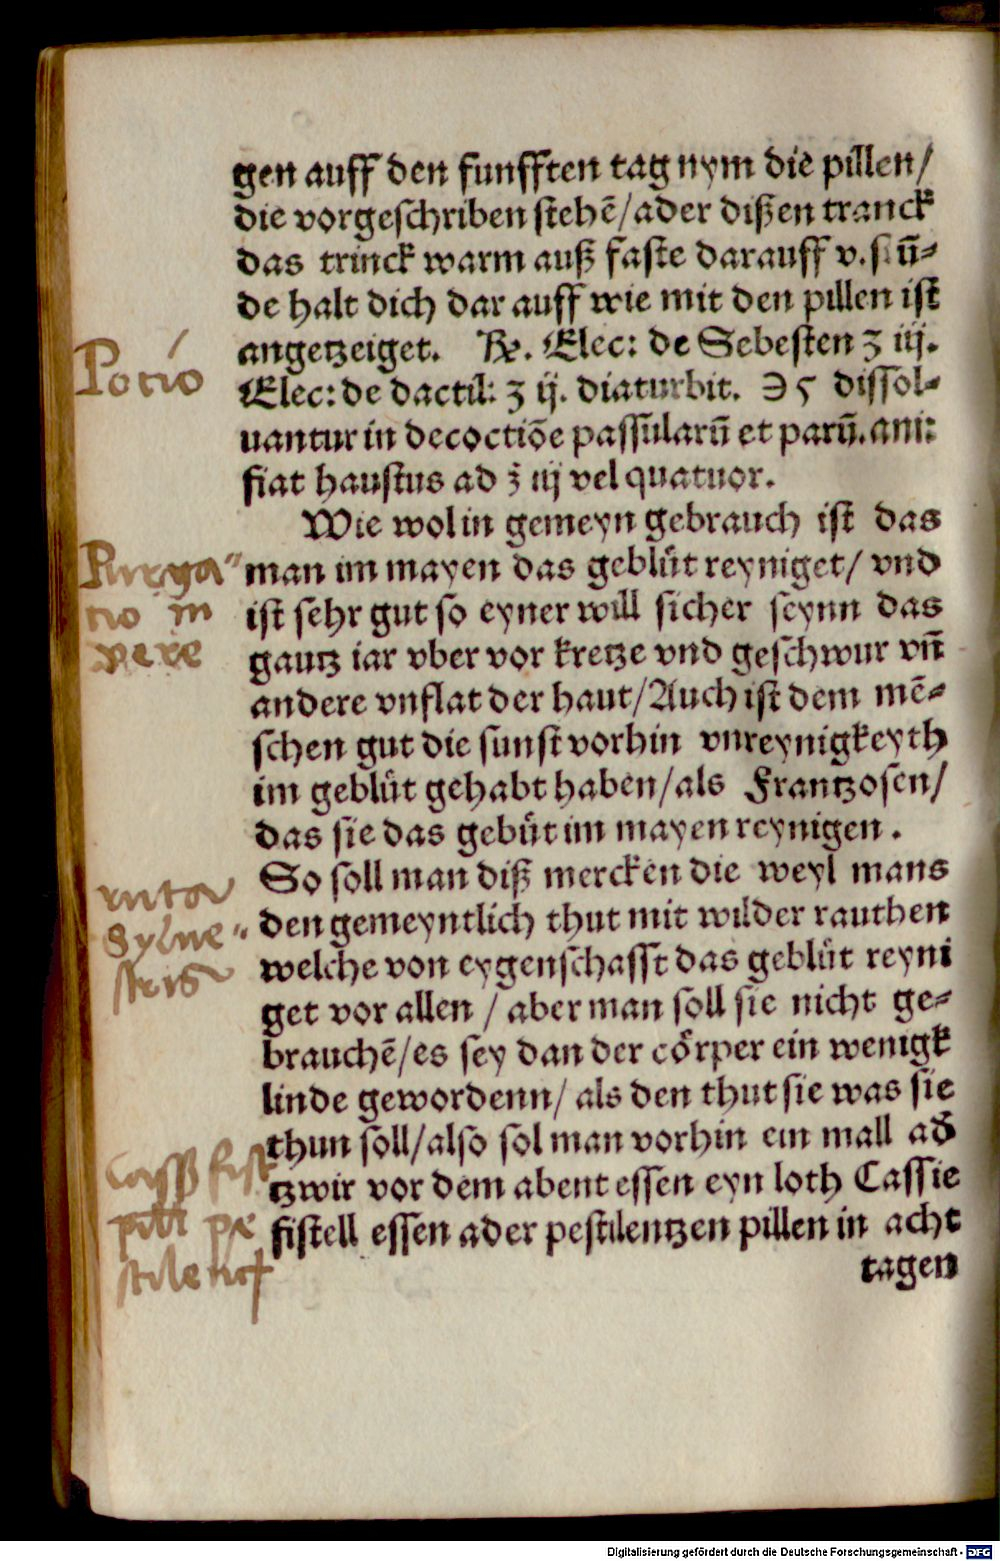 gen auff den funfften tag nym die pillen/
die vorgeschriben stehẽ/ader dißen tranck
das trinck warm auß faste darauff v. s. ũ-
de halt dich dar auff wie mit den pillen ist
angetzeiget. ℞. Elec: de Sebesten ʒ iij.
Elec: de dactil: ʒ ij. diaturbit. ℈ 5 dissol-
uantur in decoctiõe passularũ et parũ. ani:
fiat haustus ad ℥ iij vel quatuor.
Wie wol in gemeyn gebrauch ist das
man im mayen das geblüt reyniget/ vnd
ist sehr gut so eyner will sicher seynn das
gantz iar vber vor kretze vnd geschwur vñ
andere vnflat der haut/Auch ist dem mẽ-
schen gut die sunst vorhin vnreynigkeyth
im geblüt gehabt haben/als Frantzosen/
das sie das gebüt im mayen reynigen.
So soll man diß mercken die weyl mans
den gemeyntlich thut mit wilder rauthen
welche von eygenschafft das geblüt reyni
get vor allen / aber man soll sie nicht ge-
brauchẽ/es sey dan der cörper ein wenigk
linde gewordenn/ als den thut sie was sie
thun soll/also sol man vorhin ein mall ad̄
tzwir vor dem abent essen eyn loth Cassie
fistell essen ader pestilentzen pillen in acht
tagen
Potio
Purga-
tio in
vere
ruta
Sylue-
stris
Cass fist
pill pe
stilent
Digitalisierung gefördert durch die Deutsche Forschungsgemeinschaft - DFG